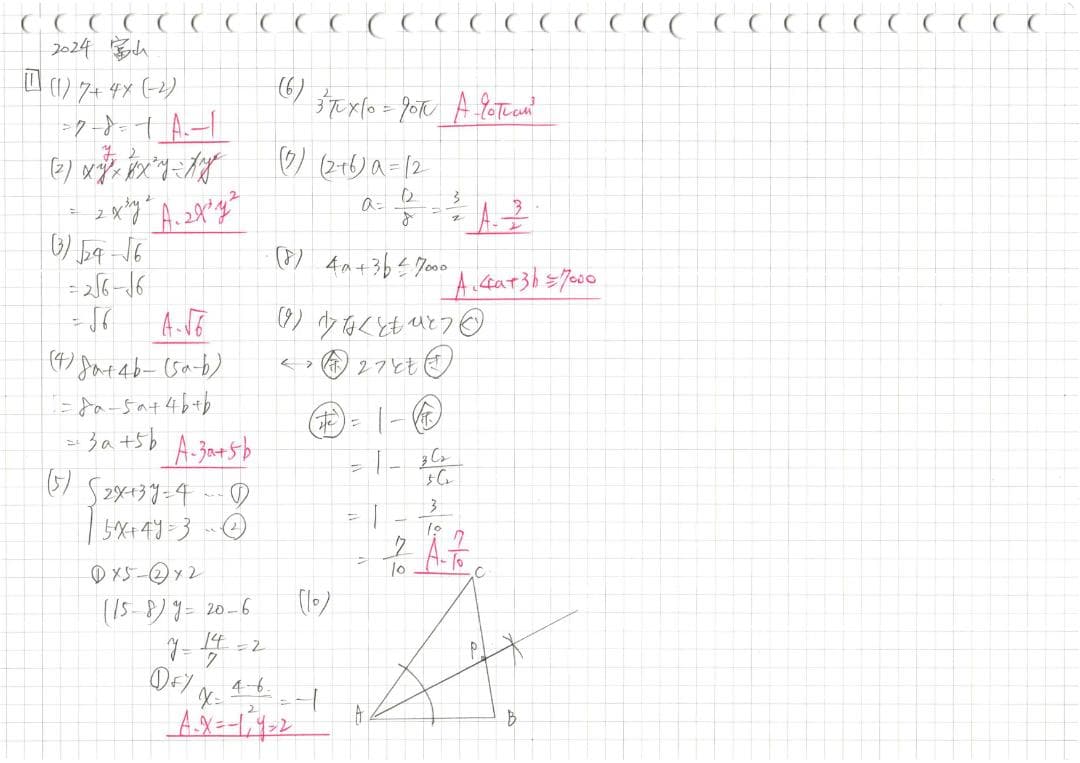 2024 富山
1 (1) 7+4×(-2)
=7-8=-1 A.-1
=2x³y² A.2x³y²
(3) √24-√6
=2√6-√6
=√6 A.√6
(4) 8a+4b-(5a-b)
=8a-5a+4b+b
=3a+5b A.3a+5b
(5) {2x+3y=4 …①
5x+4y=3 …②
①×5-②×2
(15-8)y=20-6
y=14/7=2
①より x=(4-6)/2=-1
A.x=-1, y=2
(6) 3²π×10=90π A.90πcm³
(7) (2+6)a=12
a=12/8=3/2 A.3/2
(8) 4a+3b≦7000
A.4a+3b≦7000
(9) 少なくともひとつ
↔ 余 2つとも
求=1-余
=1-3C2/5C2
=1-3/10
=7/10 A.7/10
(10)
C
P
A
B